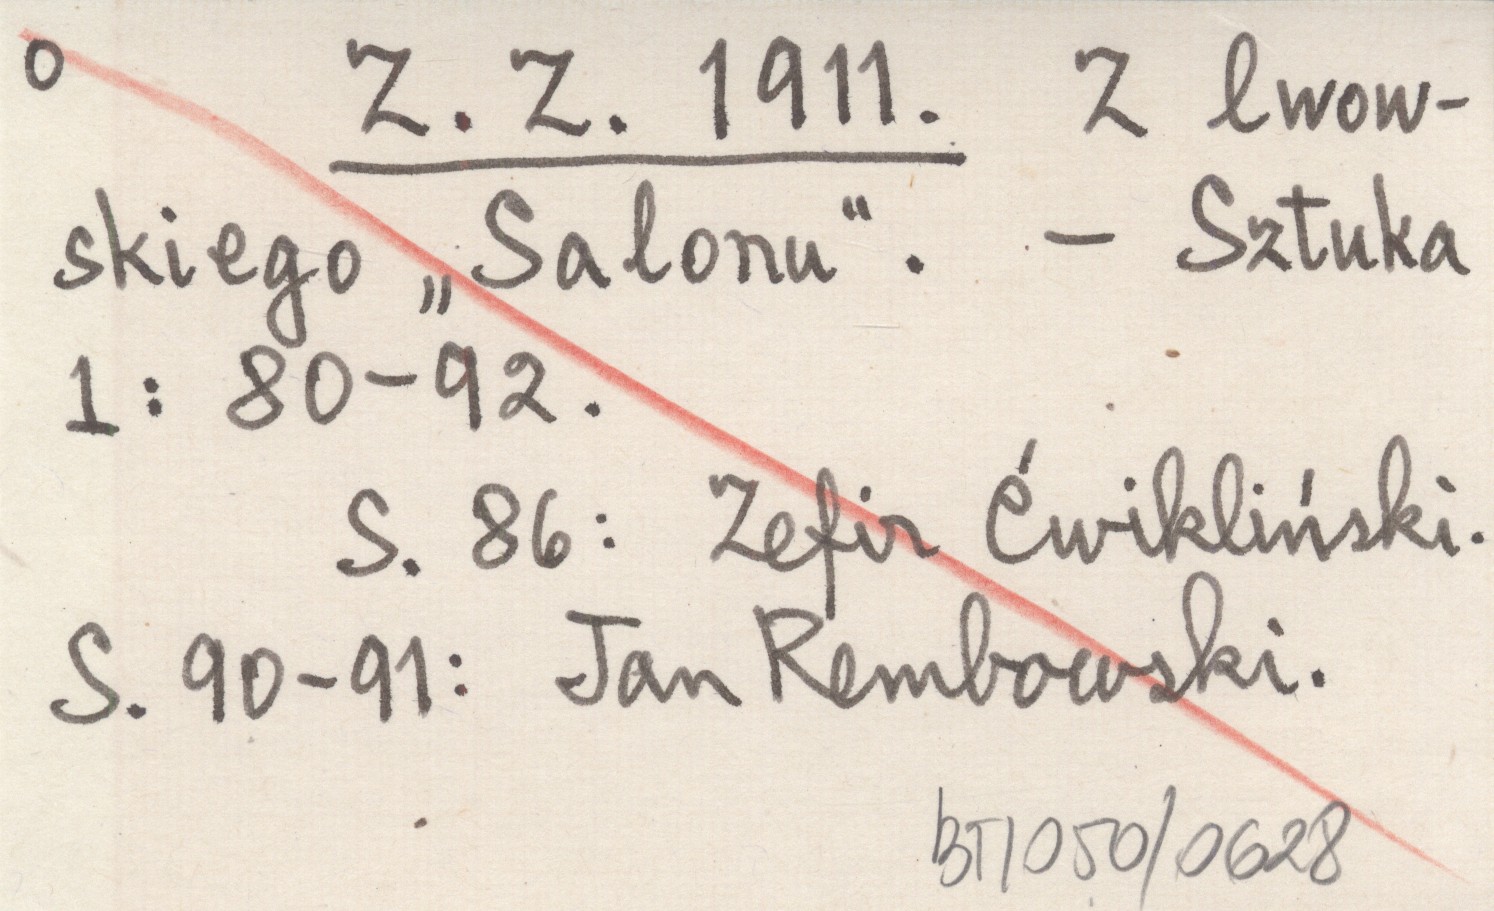 o Z. Z. 1911. Z lwow-
skiego „Salonu“. – Sztuka
1: 80–92.
S. 86: Zefir Ćwikliński.
S. 90–91: Jan Rembowski.
BT/050/0628